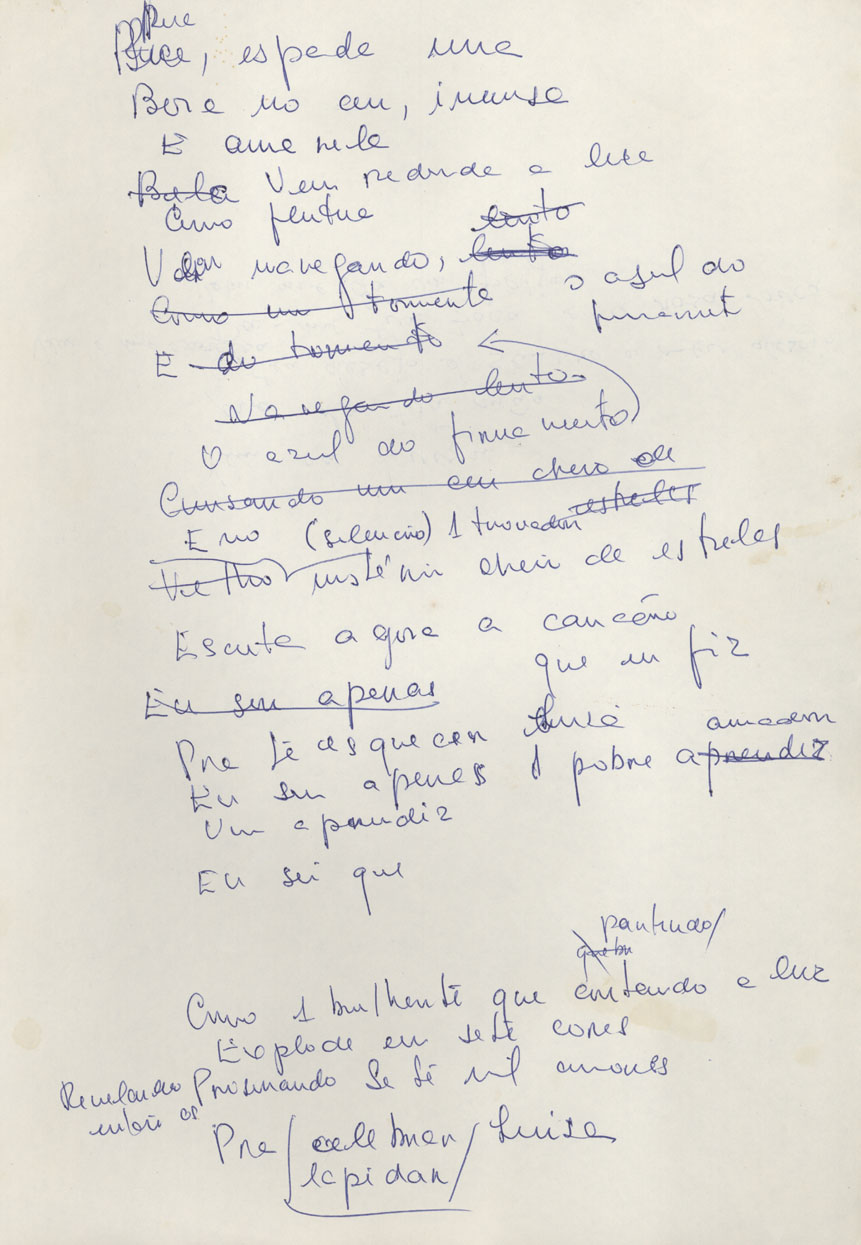 Rua
Rua, espada nua
Boia no céu, imensa
E amarela
Bela Vem redonda a lua
Como flutua
lento
Vem navegando, lento
Como um tormento o azul do
firmamento
E do tormento
Navegando lento
O azul do firmamento
Cruzando um céu cheio de
estrelas
E no (silencio) 1 trovador
Velho mistério cheio de estrelas
Escuta agora a canção
que eu fiz
Eu sou apenas
Pra te esquecer Luiza
amador
Eu sou apenas 1 pobre aprendiz
Um aprendiz
Eu sei que
partindo/
quebra
Como 1 brilhante que cortando a luz
Explode em sete cores
Revelando Procurando Sete mil amores
então os
Pra / celebrar / Luisa
lapidar /